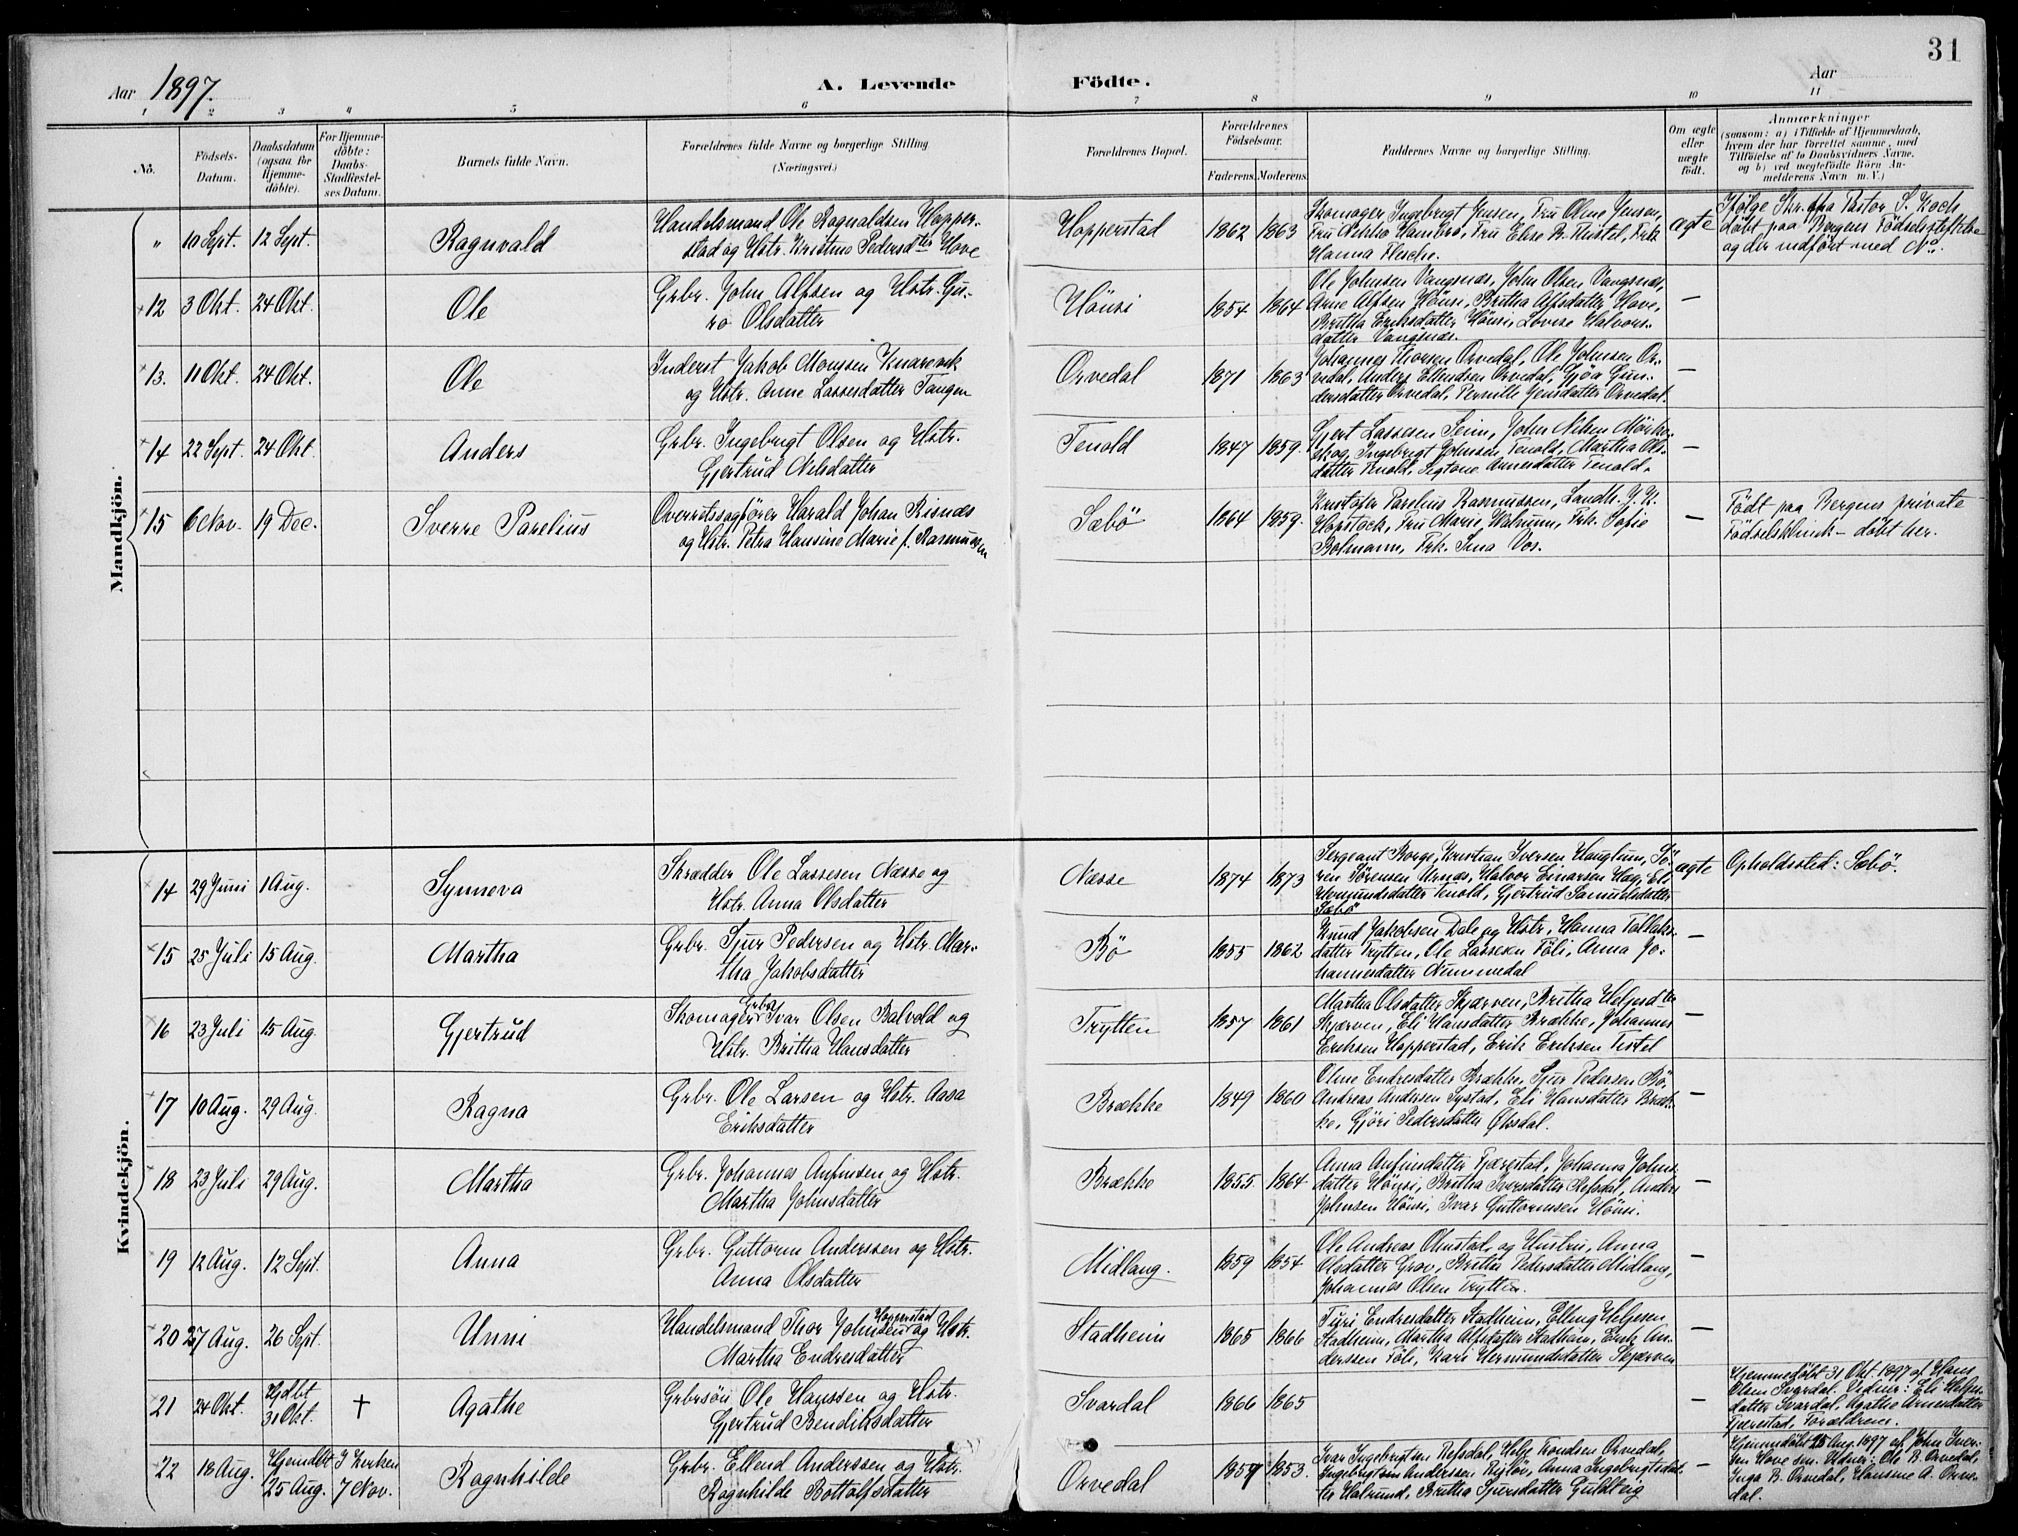 31
Aar 1897.
A. Levende Födte.
Aar
1 2 3 4 5 6 7 8 9 10 11
No.
Födsels-
Datum.
Daabsdatum
(ogsaa for
Hjemme-
döbte).
For Hjemme-
döbte:
Daabs-
Stadfæstel-
ses Datum.
Barnets fulde Navn.
Forældrenes fulde Navne og borgerlige Stilling
(Næringsvei.)
Forældrenes Bopæl.
Forældrenes
Födselsaar.
Faderens. Moderens.
Faddernes Navne og borgerlige Stilling.
Om ægte
eller
uægte
födt.
Anmærkninger
(saasom: a) i Tilfælde af Hjemmedaab,
hvem der har forrettet samme, med
Tilföielse af to Daabsvidners Navne,
og b) ved uægtefödte Börn An-
melderens Navn m. V.)
Mandkjön.
" 10 Sept. 12 Sept. Ragnvald
Handelsmand Ole Ragnvaldsen Hopper-
stad og Hstr. Kristine Pedersdter Hove
Hopperstad 1862 1863
Skomager Ingebrigt Jensen, Fru Oline Jensen,
Fru Hambro, Fru Elise B. Thistel, Frk.
Hanna Flesche.
ægte
Ifölge Skr. fra Pastor S. Koch
döbt paa Bergens Födselsstiftelse
og der indfört med No.
12 3 Okt. 24 Okt. Ole
Grbr. John Alfsen og Hstr. Gu-
ro Olsdatter
Hönsi 1854 1864
Ole Johnsen Vangsnæs, John Olsen Vangsnæs,
Arne Alfsen Hönsi, Britha Alfsdatter Hove,
Britha Eriksdatter Hönsi, Lovise Halvors-
datter Vangsnæs.
—
13. 11 Okt. 24 Okt. Ole
Inderst Jakob Monssen Knarevik
og Hstr. Anne Lassesdatter Tangen
Orvedal 1871 1863
Johannes Thorsen Orvedal, Ole Johnsen Or-
vedal, Anders Ellendsen Orvedal, Gjöa Gun-
dersdatter Orvedal, Pernille Jensdatter Orvedal.
—
14 22 Sept. 24 Okt. Anders
Grbr. Ingebrigt Olsen og Hstr.
Gjertrud Nilsdatter
Tenold 1847 1859.
Gjert Lassesen Seim, John Nilsen Mörke-
skog, Ingebrigt Johnssen Tenold, Martha Ols-
datter Tenold, Sigtone Arnesdatter Tenold.
—
15 6 Nov. 19 Dec. Sverre Parelius
Overretssagförer Harald Johan Risnæs
og Hstr. Petra Hansine Marie f. Rasmussen
Sæbö 1864 1859.
Kristofer Parelius Rasmussen, Landh. J. K.
Horstock, Fru Marie Walnum, Frk. Sofie
Bohmann, Frk. Sina Vos.
—
Födt paa Bergens private
Födselsklinik – döbt her.
Kvindekjön.
14 29 Juni 1 Aug. Synneva
Skrædder Ole Lassesen Næsse og
Hstr. Anna Olsdatter
Næsse 1874 1873
Sergeant Borge, Kristian Iversen Hauglum, Sö-
ren Sörensen Urnæs, Halvor Einarsen Hæg, Eli
Hermundsdatter Tenold, Gjertrud Samuelsdatter
Sæbö
ægte
Opholdssted: Sæbö.
15 25 Juli 15 Aug. Martha
Grbr. Sjur Pedersen og Hstr. Mar-
tha Jakobsdatter
Bö 1855 1862
Knud Jakobsen Dale og Hstr., Hanna Tollaks-
datter Trytten, Ole Lassesen Föli, Anna Jo-
hannesdatter Nummedal
—
16 23 Juli 15 Aug. Gjertrud
Grbr.
Skomager Ivar Olsen Balvold og
Hstr. Britha Hansdatter
Trytten 1857 1861
Martha Olsdatter Skjærven, Britha Heljesdter
Skjærven, Eli Hansdatter Brække, Johannes
Eriksen Hopperstad, Erik Eriksen Tistel
—
17 10 Aug. 29 Aug. Ragna
Grbr. Ole Larsen og Hstr. Aasa
Eriksdatter
Brække 1849 1860
Oline Endresdatter Brække, Sjur Pedersen Bö,
Andreas Andersen Systad, Eli Hansdatter Bræk-
ke, Gjöri Pedersdatter Öksdal.
—
18 23 Juli 29 Aug. Martha
Grbr. Johannes Anfindsen og Hstr.
Martha Johnsdatter
Brække 1855 1864
Anna Anfinsdatter Fjærestad, Johanna Johns-
datter Hönsi, Britha Iversdatter Refsdal, Anders
Johnsen Hönsi, Ivar Guttormsen Hönsi.
—
19 12 Aug. 12 Sept. Anna
Grbr. Guttorm Anderssen og Hstr.
Anna Olsdatter
Midlang. 1859 1854
Ole Andreas Ohnstad og Hustru, Anna
Olsdatter Grov, Britha Pedersdatter Midlang,
Johannes Olsen Trytten.
—
20 27 Aug. 26 Sept. Unni
Hopperstad
Handelsmand Thor Johnsen og Hstr.
Martha Endresdatter
Stadheim 1865 1866
Turi Endresdatter Stadheim, Elling Heljesen
Stadheim, Martha Alfsdatter Stadheim, Erik An-
derssen Föli, Kari Hermundsdatter Skjærven
—
21 24 Okt. Hjdbt
31 Okt. † Agathe
Grbrsön Ole Hanssen og Hstr.
Gjertrud Bendiksdatter
Svardal 1866 1865
—
Hjemmedöbt 31 Okt. 1897 af Hans
Olsen Svardal. Vidner: Eli Helges-
datter Svardal, Agathe Arnesdatter
Fjærestad. Forældrene.
22 18 Aug. Hjemdbt
25 Aug. I Kirken
7 Nov. Ragnhilde
Grbr. Ellend Anderssen og Hstr.
Ragnhilde Bottolfsdatter
Orvedal 1859 1853.
Ivar Ingebrigtsen Refsdal, Helje Knudsen Orvedal,
Anderssen Risløv, Anna Ingebrigtsdat-
ter Halrund, Britha Sjursdatter Guldteig
—
Hjemmdöbt 25 Aug. 1897 af John Iver-
sen Hove sen. Vidner: Ole B. Orvedal,
Inga B. Orvedal, Hansine A. Orve-
dal.